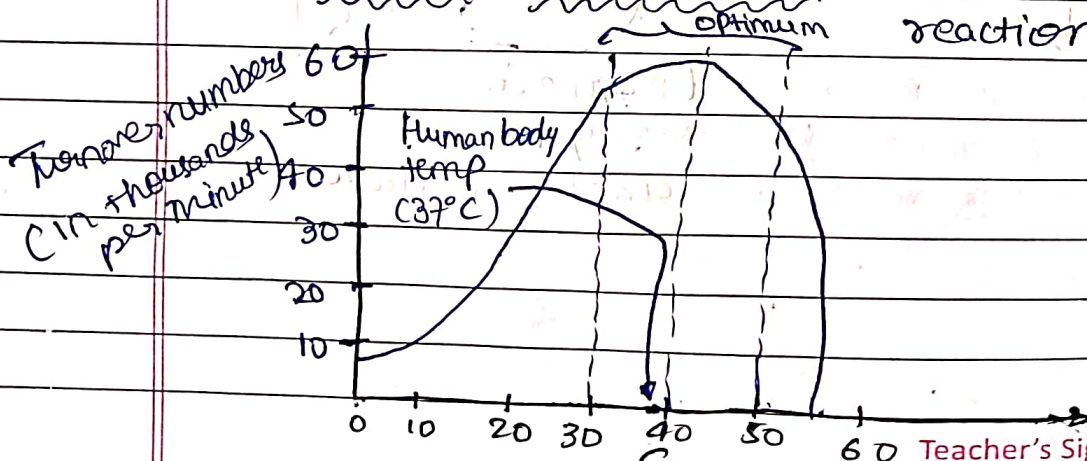 optimum
reaction
Turnover numbers
(in thousands
per minute)
60
50
40
30
20
10
Human body
temp
(37°C)
0 10 20 30 40 50 60
Teacher's Si